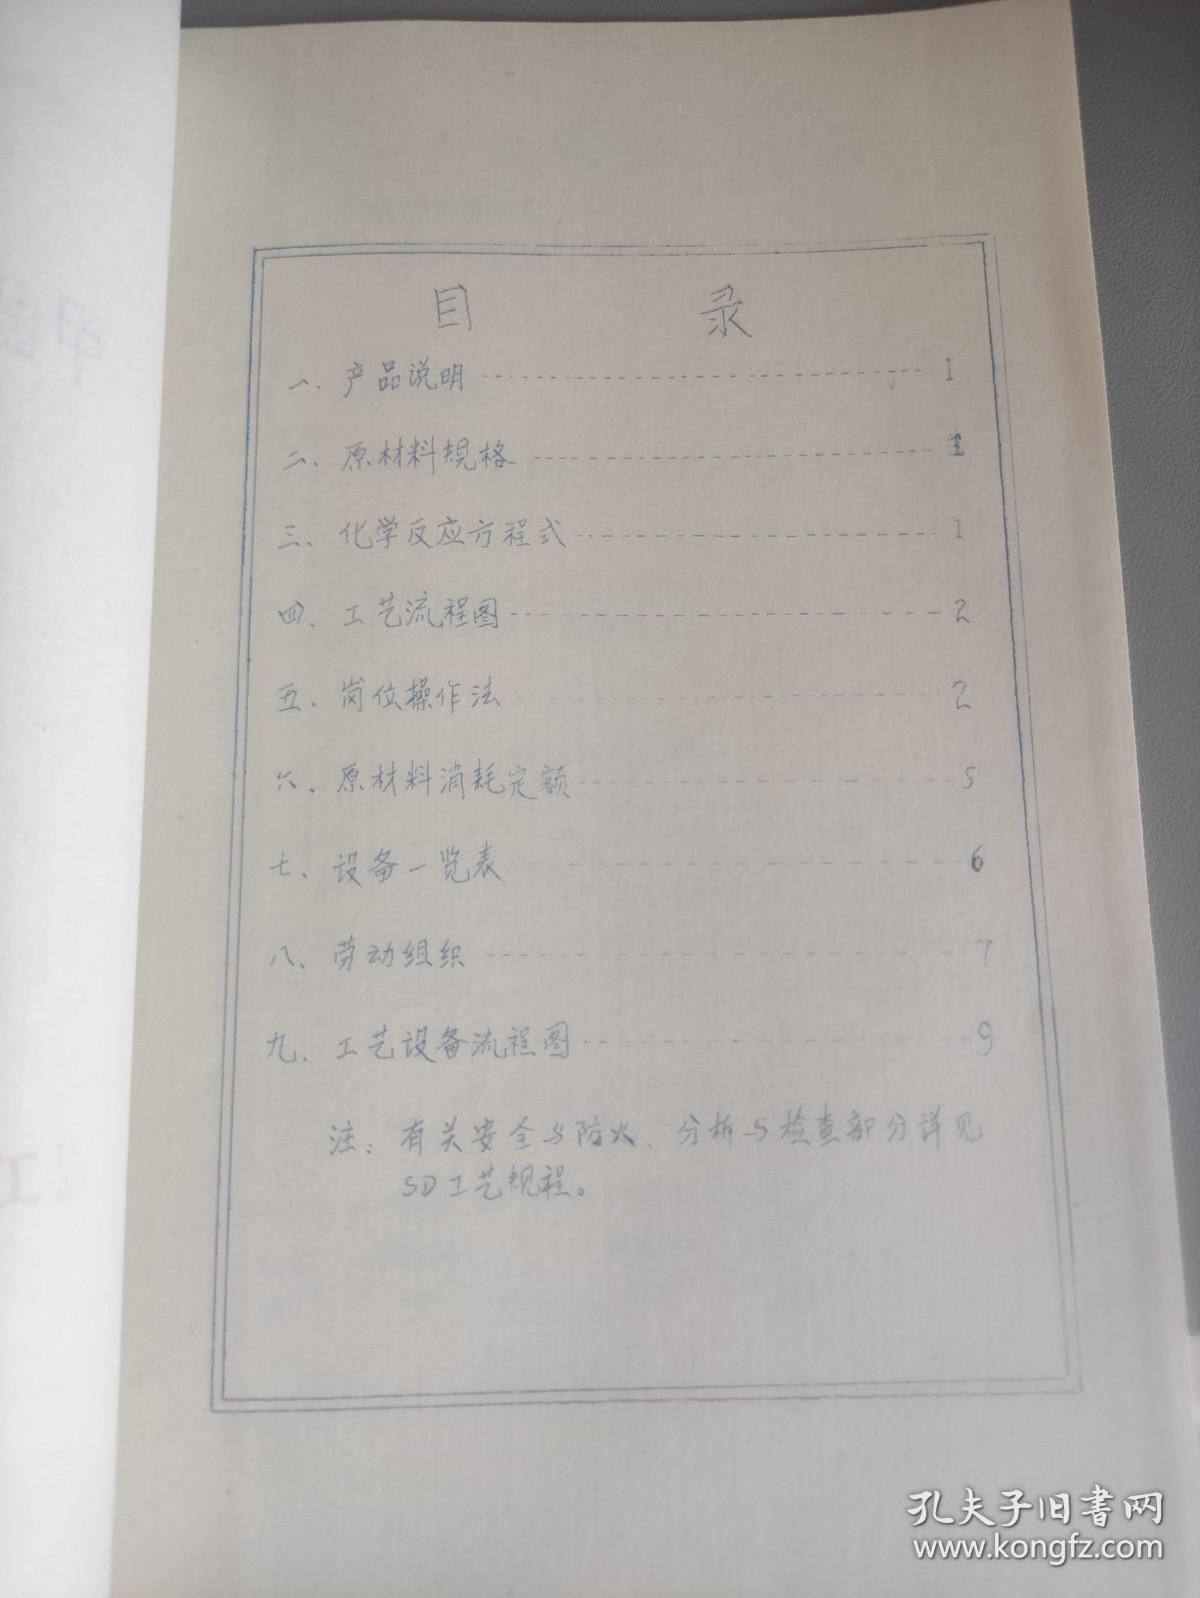 目 录
一、产品说明 1
二、原材料规格 1
三、化学反应方程式 1
四、工艺流程图 2
五、岗位操作法 2
六、原材料消耗定额 5
七、设备一览表 6
八、劳动组织 7
九、工艺设备流程图 9
注：有关安全与防火、分析与检查部分详见
SD工艺规程。
孔夫子旧书网
www.kongfz.com